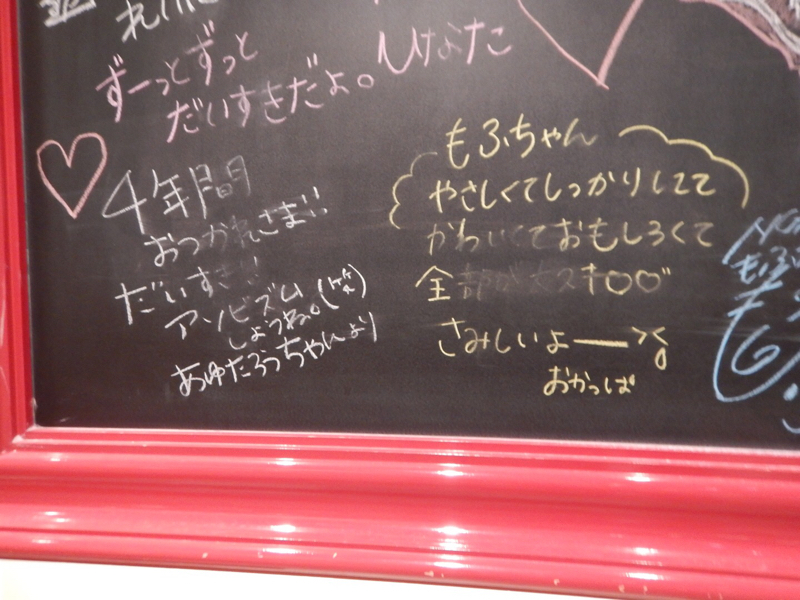 ずーっとずっと
だいすきだよ。ひなた
4年間
おつかれさま!!
だいすき!!
アソビズム
しょうね。
あゆたろうちゃんより
もふちゃん
やさしくてしっかりしてて
かわいくておもしろくて
全部が大スキ○○
さみしいよー
おかっぱ
もふ